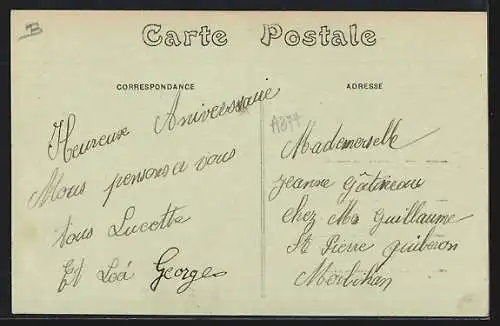 B
Carte Postale
CORRESPONDANCE
Heureuse Aniversaire
Nous pensons a vous
tous Lucette
Et Loá Georges
ADRESSE
A877
Mademerselle
jeanne Gâtineau
chez Mr Guillaume
St Pierre quiberon
Morbihan